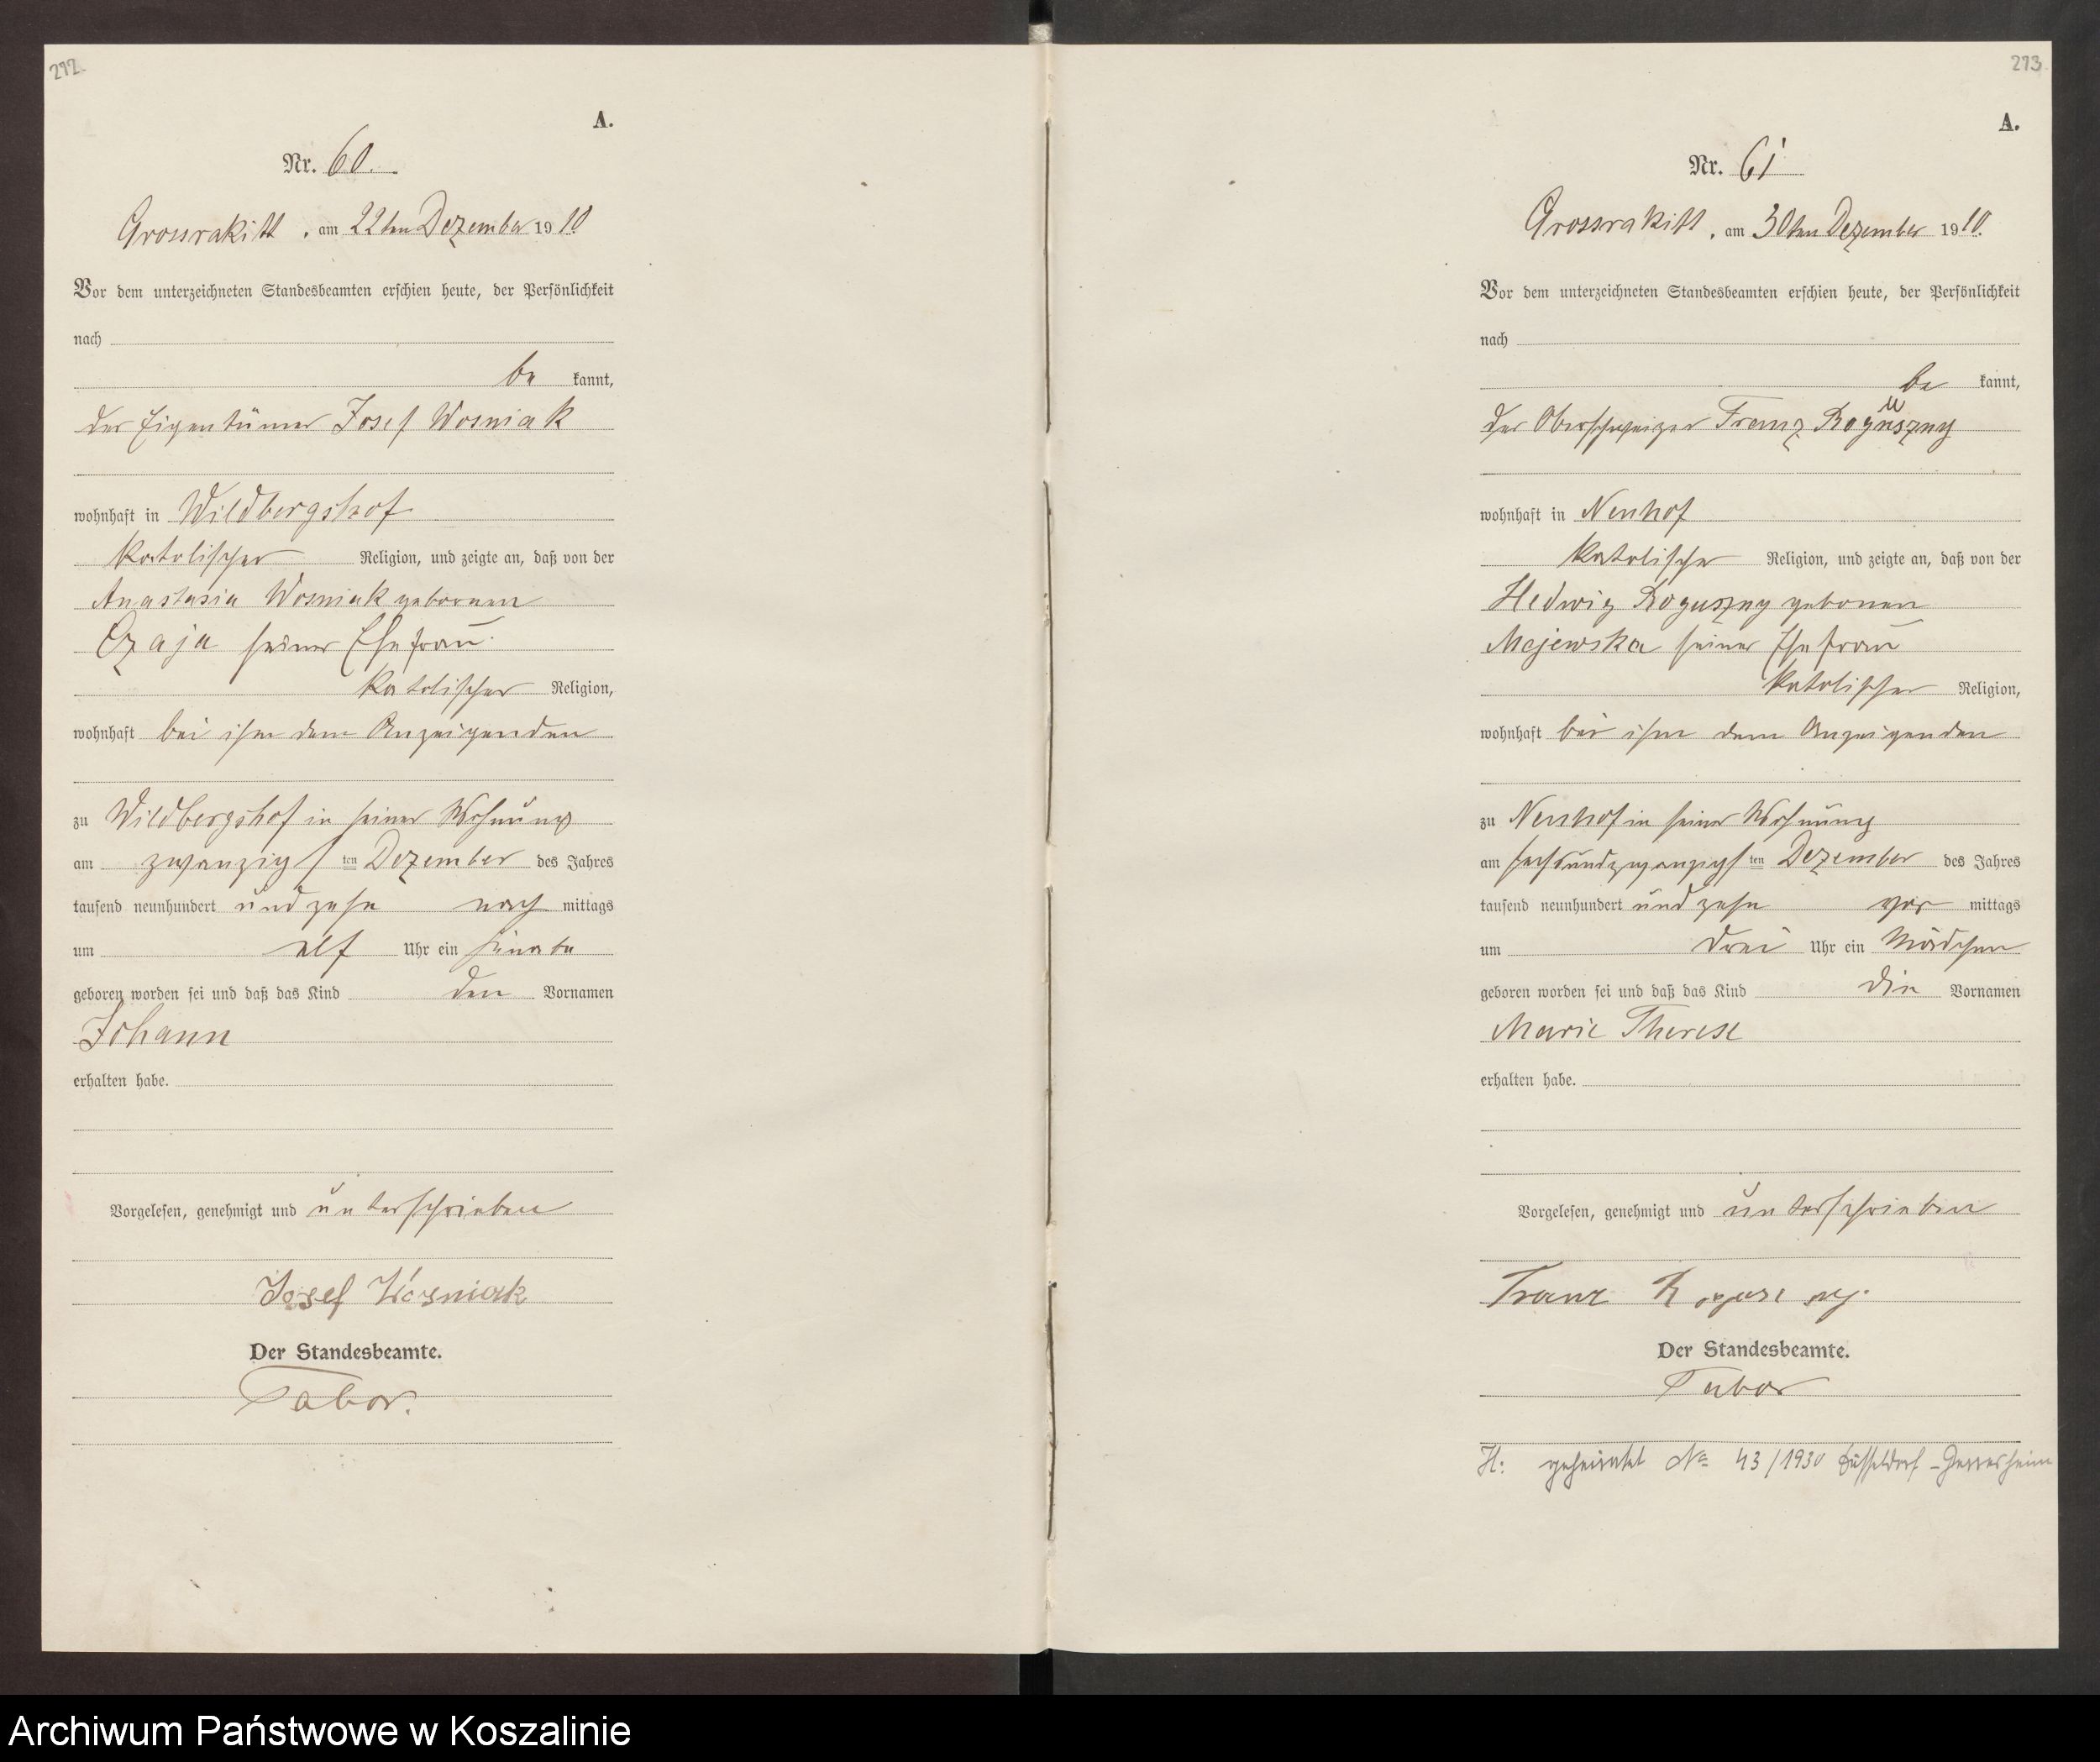 212.
A.
Nr. 60.
Grossrakitt, am 22ten Dezember 1910
Vor dem unterzeichneten Standesbeamten erschien heute, der Persönlichkeit
nach
be kannt,
der Eigentümer Josef Wosniak
wohnhaft in Wildbergshof
katolischer Religion, und zeigte an, daß von der
Anastasia Wosniak geborenen
Czaja seiner Ehefrau
katolischer Religion,
wohnhaft bei ihm dem Anzeigenden
zu Wildbergshof in seiner Wohnung
am zwanzigsten Dezember des Jahres
tausend neunhundert und zehn nach mittags
um elf Uhr ein
geboren worden sei und daß das Kind den Vornamen
Johann
erhalten habe.
Vorgelesen, genehmigt und unterschrieben
Josef Wosniak
Der Standesbeamte.
Tabor.
213
A.
Nr. 61
Grossrakitt, am 30ten Dezember 1910.
Vor dem unterzeichneten Standesbeamten erschien heute, der Persönlichkeit
nach
be kannt,
der Oberschweizer Franz Roguszny
wohnhaft in Neuhof
katolischer Religion, und zeigte an, daß von der
Hedwig Roguszny gebornen
Majewska seiner Ehefrau
katolischer Religion,
wohnhaft bei ihm dem Anzeigenden
zu Neuhof in seiner Wohnung
am sechsundzwanzigsten Dezember des Jahres
tausend neunhundert und zehn vor mittags
um drei Uhr ein Mädchen
geboren worden sei und daß das Kind die Vornamen
Marie Therese
erhalten habe.
Vorgelesen, genehmigt und unterschrieben
Franz
Der Standesbeamte.
Tabor
H: geheiratet No 43/1930 Düsseldorf-Gerresheim
Archiwum Państwowe w Koszalinie